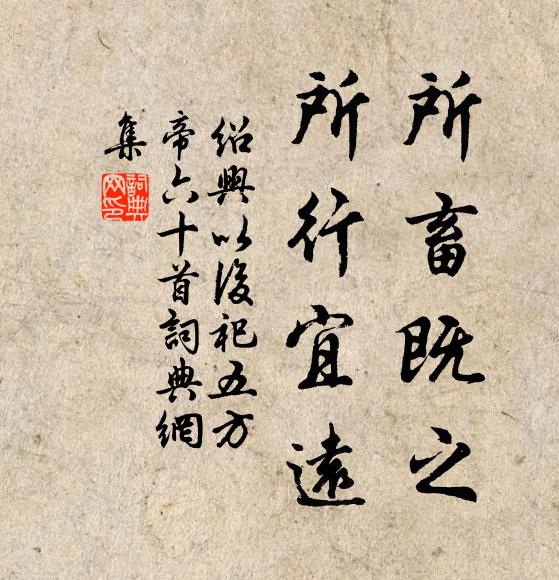 所畜既之
所行宜遠
紹興以後祀五方
帝六十首詞典網
集
詞典網印